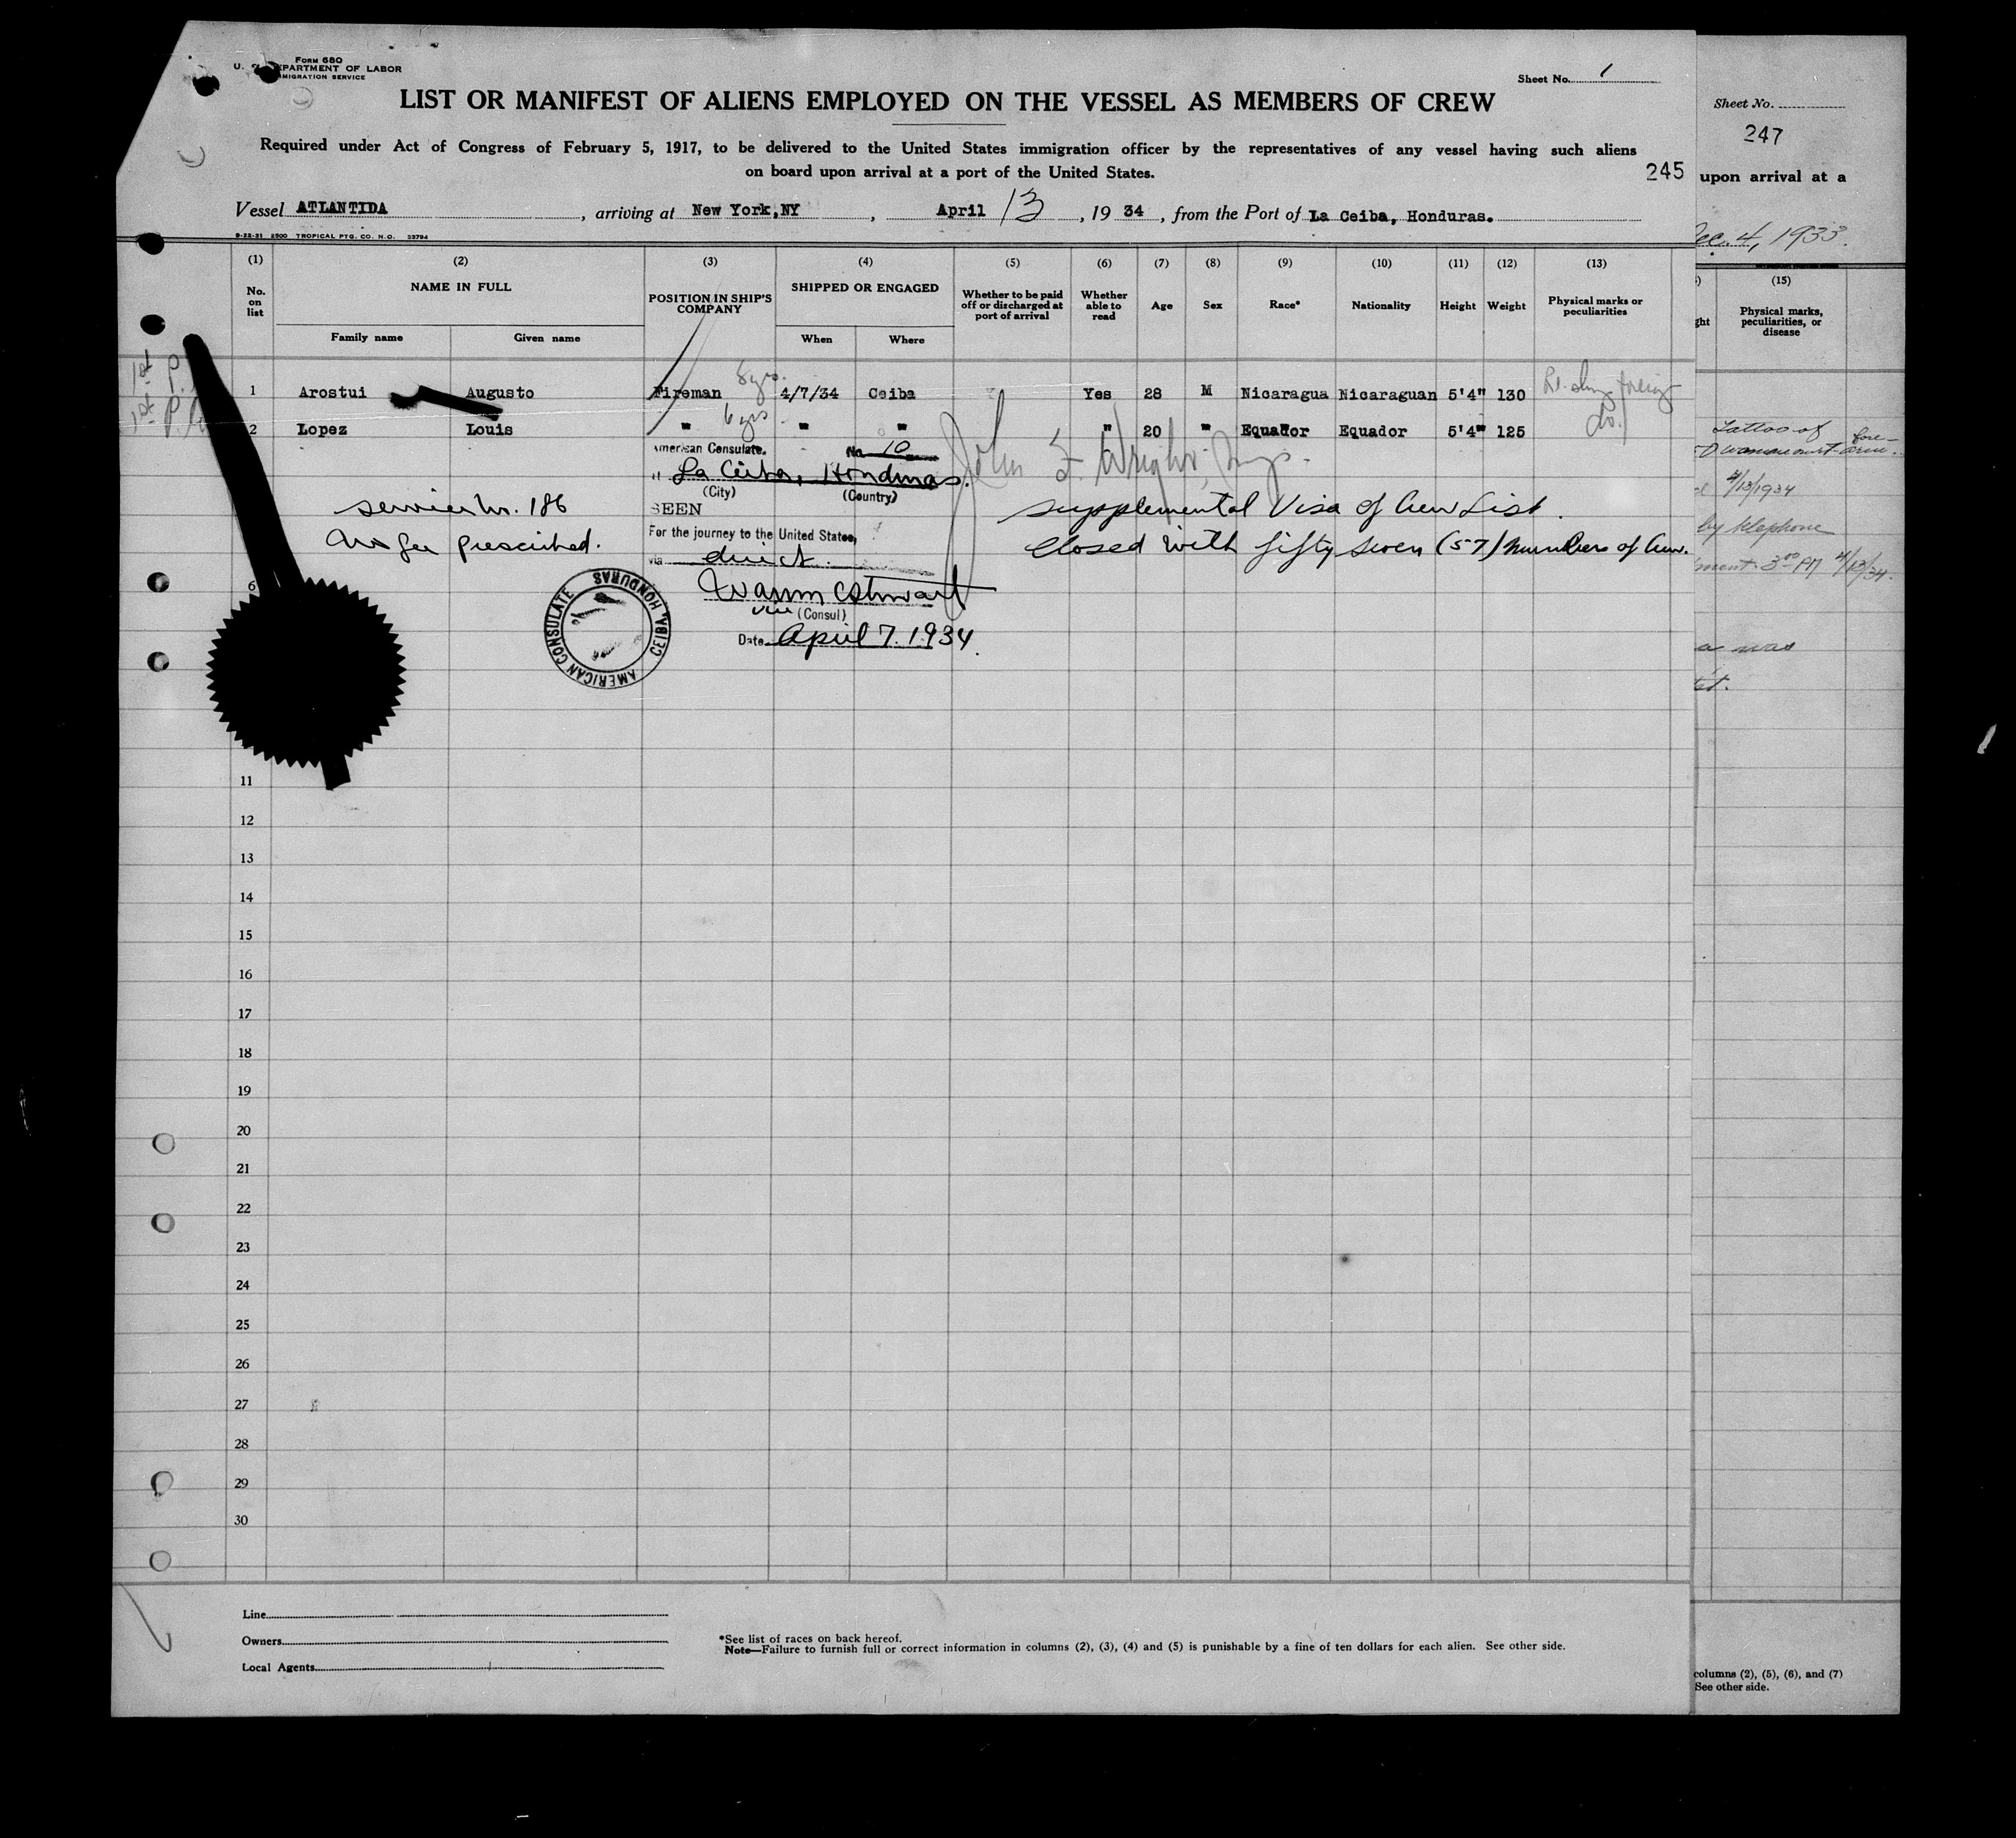 Form 680
U. S. DEPARTMENT OF LABOR
IMMIGRATION SERVICE
Sheet No. 1
LIST OR MANIFEST OF ALIENS EMPLOYED ON THE VESSEL AS MEMBERS OF CREW
Required under Act of Congress of February 5, 1917, to be delivered to the United States immigration officer by the representatives of any vessel having such aliens
on board upon arrival at a port of the United States.
245
Vessel ATLANTIDA, arriving at New York, NY, April 13, 1934, from the Port of La Ceiba, Honduras.
9-22-31 2500 TROPICAL PTG. CO. N.O. 23794
(1) (2) (3) (4) (5) (6) (7) (8) (9) (10) (11) (12) (13)
No. on list
NAME IN FULL
Family name Given name
POSITION IN SHIP'S COMPANY
SHIPPED OR ENGAGED
When Where
Whether to be paid off or discharged at port of arrival
Whether able to read
Age Sex Race* Nationality Height Weight
Physical marks or peculiarities
1st P.
1 Arostui Augusto Fireman 8 yrs. 4/7/34 Ceiba Yes 28 M Nicaragua Nicaraguan 5'4" 130
1st P.
2 Lopez Louis " 6 yrs " " " 20 " Equador Equador 5'4" 125 do.
American Consulate. No. 10
La Ceiba, Honduras.
(City) (Country)
SEEN
For the journey to the United States,
via direct.
(Consul)
Date April 7. 1934.
AMERICAN CONSULATE CEIBA, HONDURAS
John F. Wright, Insp.
Service No. 186
No fee prescribed.
Supplemental Visa of Crew List.
Closed with fifty seven (57) members of Crew.
6
11
12
13
14
15
16
17
18
19
20
21
22
23
24
25
26
27
28
29
30
Line
Owners
Local Agents
*See list of races on back hereof.
Note—Failure to furnish full or correct information in columns (2), (3), (4) and (5) is punishable by a fine of ten dollars for each alien. See other side.
Sheet No.
247
upon arrival at a
Dec. 4, 1933.
(15)
Physical marks, peculiarities, or disease
Tattoo of
4/13/1934
by telephone
3:00 PM 4/13/34.
was
columns (2), (5), (6), and (7)
See other side.